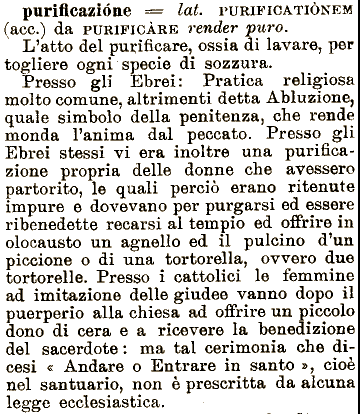 purificazióne = lat. PURIFICATIÒNEM
(acc.) da PURIFICÀRE render puro.
L'atto del purificare, ossia di lavare, per
togliere ogni specie di sozzura.
Presso gli Ebrei: Pratica religiosa
molto comune, altrimenti detta Abluzione,
quale simbolo della penitenza, che rende
monda l'anima dal peccato. Presso gli
Ebrei stessi vi era inoltre una purifica-
zione propria delle donne che avessero
partorito, le quali perciò erano ritenute
impure e dovevano per purgarsi ed essere
ribenedette recarsi al tempio ed offrire in
olocausto un agnello ed il pulcino d'un
piccione o di una tortorella, ovvero due
tortorelle. Presso i cattolici le femmine
ad imitazione delle giudee vanno dopo il
puerperio alla chiesa ad offrire un piccolo
dono di cera e a ricevere la benedizione
del sacerdote: ma tal cerimonia che di-
cesi « Andare o Entrare in santo », cioè
nel santuario, non è prescritta da alcuna
legge ecclesiastica.